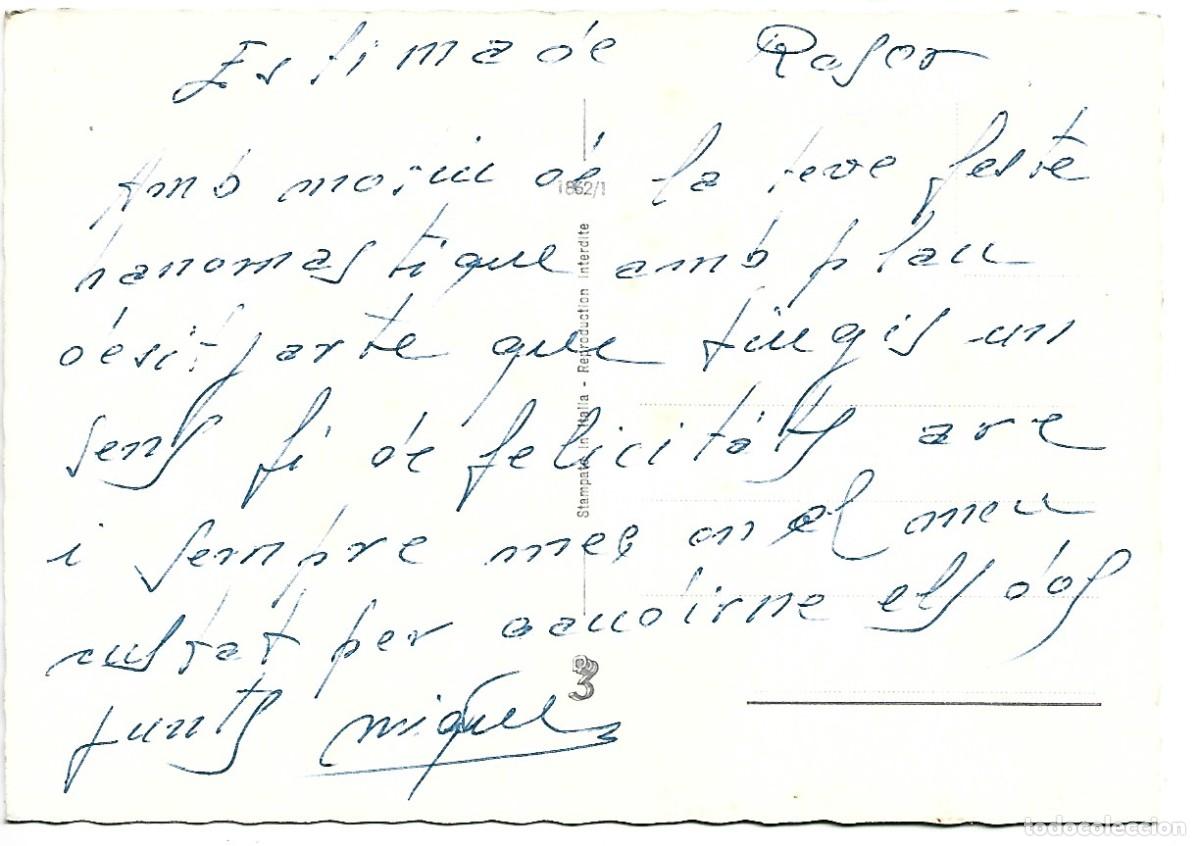 Estimade Roser
Amb motiu de la teve feste
hanomastique amb plau
desitjarte que tingis un
sens fi de felicitats are
i sempre mes en el meu
custat per gaudirne els dos
junts Miquel
1862/1
Stampato in Italia - Reproduction Interdite
todocoleccion